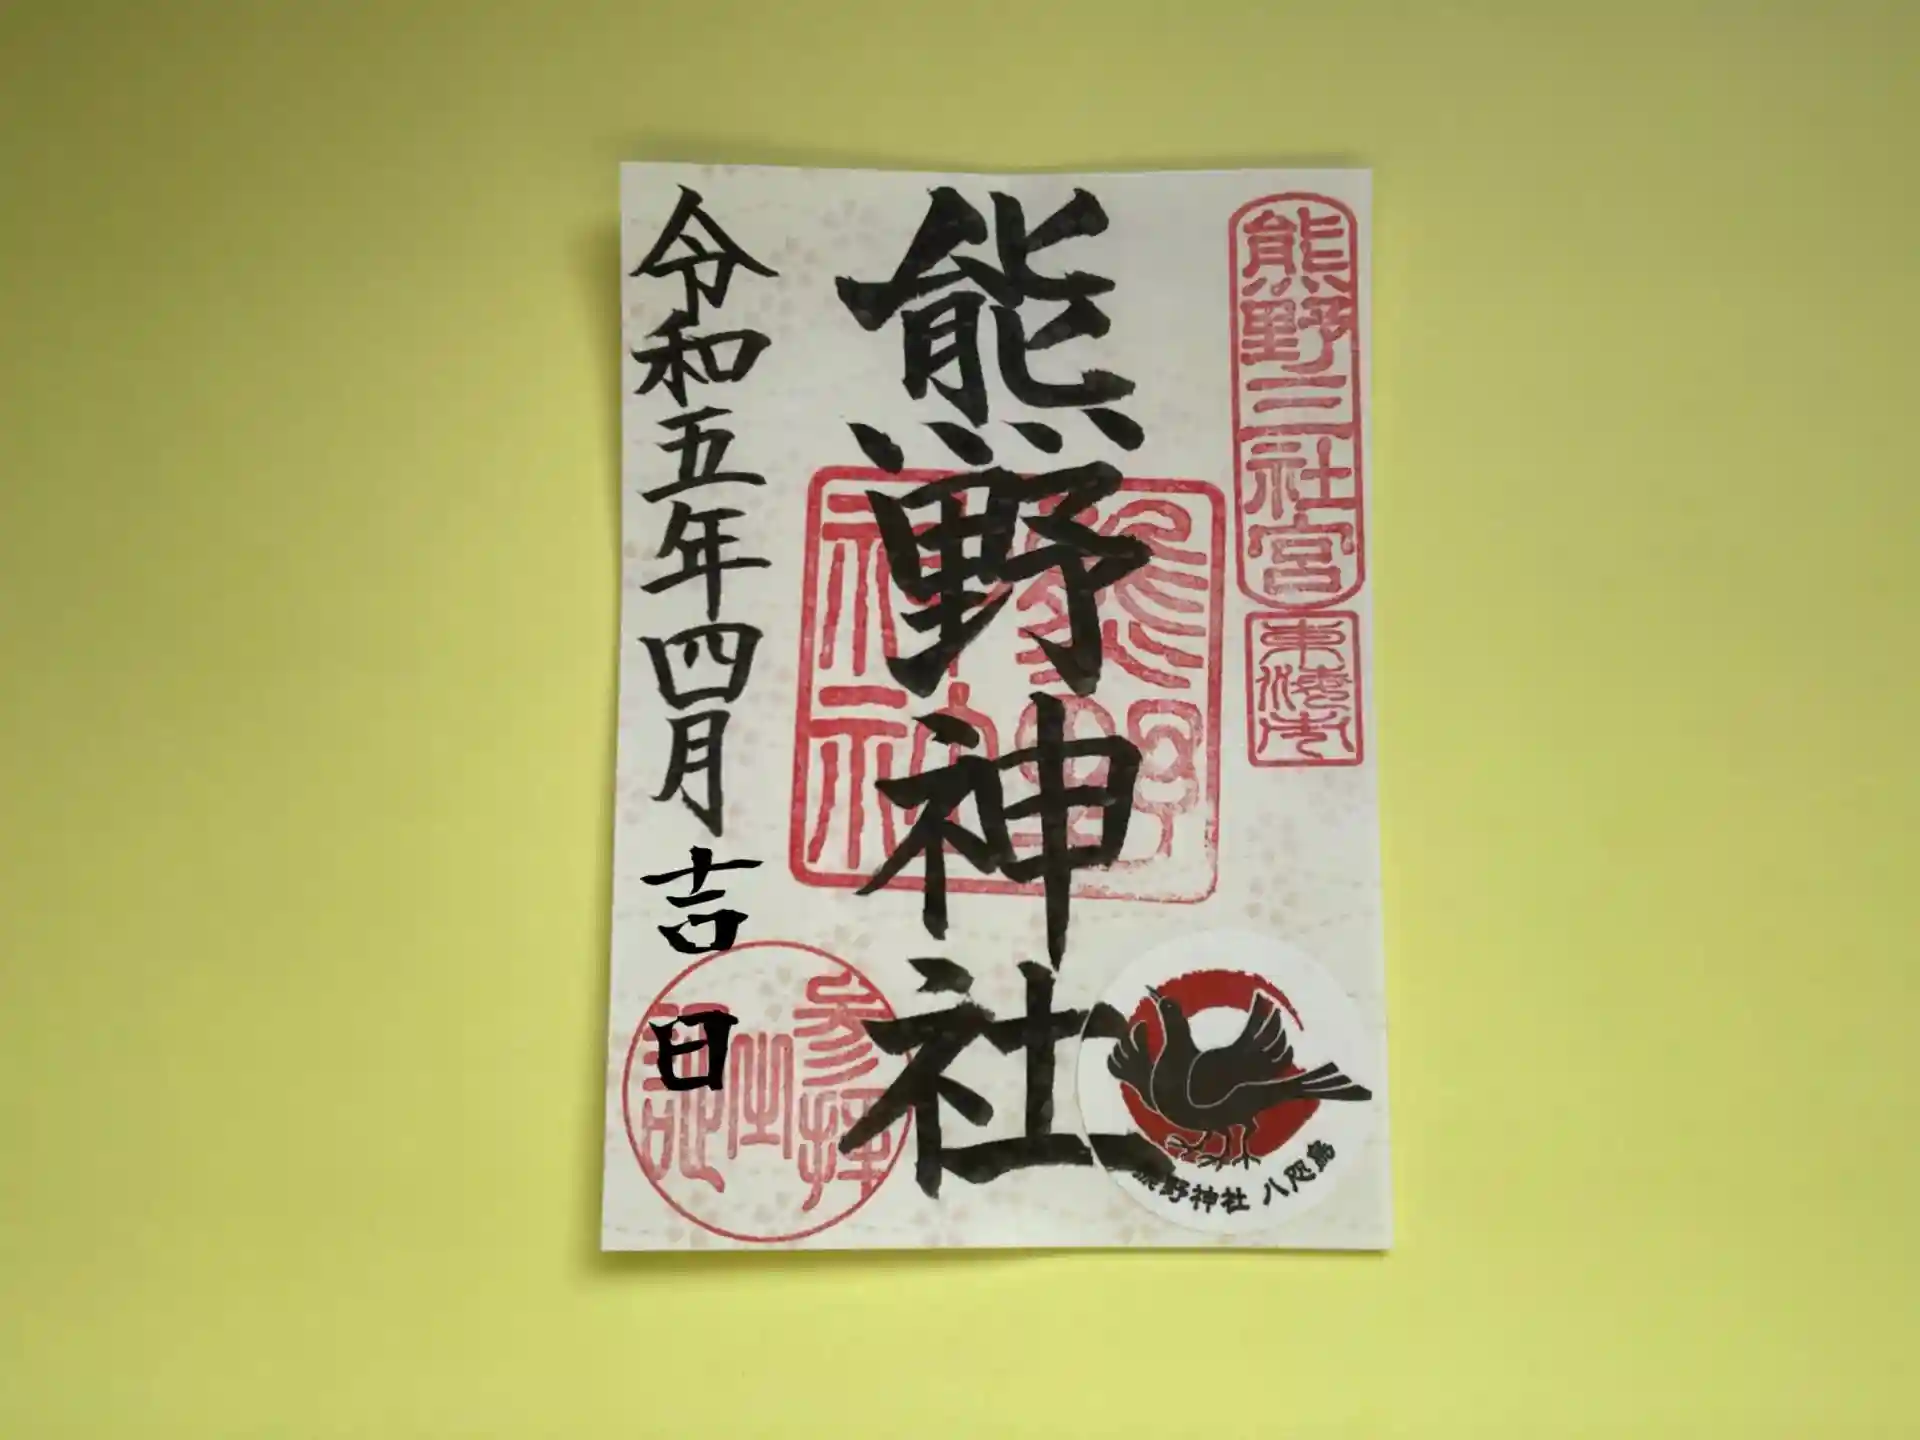 熊野三社宮
東海市
熊野神社
熊野
神社
令和五年四月吉日
参拝
之
証
熊野神社 八咫烏